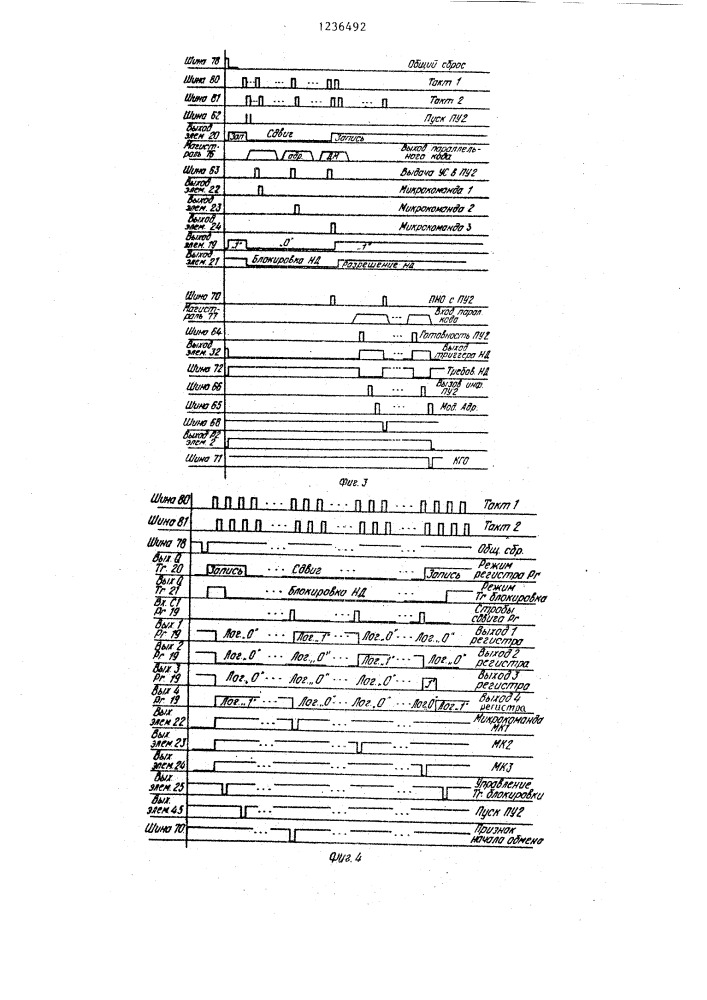 1236492
Шина 78 Общий сброс
Шина 80 ... Такт 1
Шина 81 ... Такт 2
Шина 62 Пуск ПУ2
Выход элем. 20 Зап Сдвиг Запись
Магистраль 76 адр. ДИ Выход параллельного кода
Шина 63 Выдача УС в ПУ2
Выход элем. 22 Микрокоманда 1
Выход элем. 23 Микрокоманда 2
Выход элем. 24 Микрокоманда 3
Выход элем. 19 „1" „0" „1"
Выход элем. 21 Блокировка НД Разрешение НД
Шина 70 ПНО с ПУ2
Магистраль 77 ... Вход парал. кода
Шина 64 Готовность ПУ2
Выход элем. 32 ... Выход триггера НД
Шина 72 ... Требов. НД
Шина 66 ... Вызов инф. ПУ2
Шина 65 ... Мод. Адр.
Шина 68
Выход элем. 2
Шина 71 КГО
Фиг. 3
Шина 80 ... ... ... Такт 1
Шина 81 ... ... ... Такт 2
Шина 78 ... ... Общ. сбр.
Вых Q Тг. 20 Запись ... Сдвиг ... ... Запись Режим регистра Рг
Вых Q Тг 21 ... Блокировка НД ... Режим Тг блокировка
Вх. С1 Рг 19 ... ... ... Стробы сдвига Рг
Вых 1 Рг 19 Лог„0" ... Лог„1" ... Лог„0" ... Лог„0" Выход 1 регистра
Вых 2 Рг 19 Лог„0" ... Лог„0" ... Лог„1" ... Лог„0" Выход 2 регистра
Вых 3 Рг 19 Лог„0" ... Лог„0" ... Лог„0" ... „1" Выход 3 регистра
Вых 4 Рг 19 Лог„1" ... Лог„0" ... Лог„0" ... Лог0 Лог„1" Выход 4 регистра
Вых элем. 22 ... ... ... Микрокоманда МК1
Вых элем. 23 ... ... ... МК2
Вых элем. 24 ... ... ... МК3
Вых элем. 25 ... ... ... Управление Тг блокировки
Вых. элем. 45 ... ... ... Пуск ПУ2
Шина 70 ... ... ... Признак начала обмена
Фиг. 4